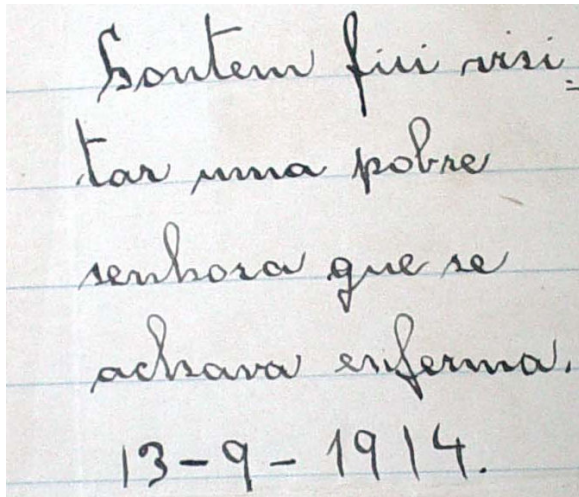 Hontem fui visi=
tar uma pobre
senhora que se
achava enferma.
13-9-1914.